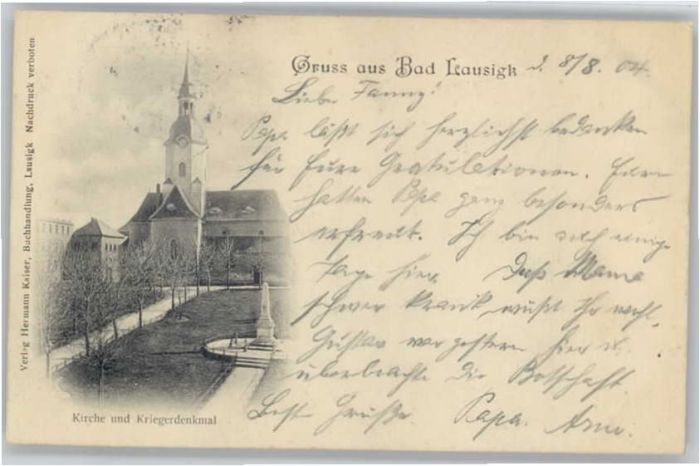 Gruss aus Bad Lausigk d. 8/8. 04.
Liebe Fanny!
Papa läßt sich herzlichst bedanken
für Eure Gratulationen.
hatten Papa ganz besonders
erfreut. Ich bin noch einige
Tage hier. Daß Mama
schwer krank wißt Ihr wohl.
Gustav war gestern hier u.
überbrachte die Botschaft
Beste Grüße. Papa. Arno.
Kirche und Kriegerdenkmal
Verlag Hermann Kaiser, Buchhandlung, Lausigk Nachdruck verboten